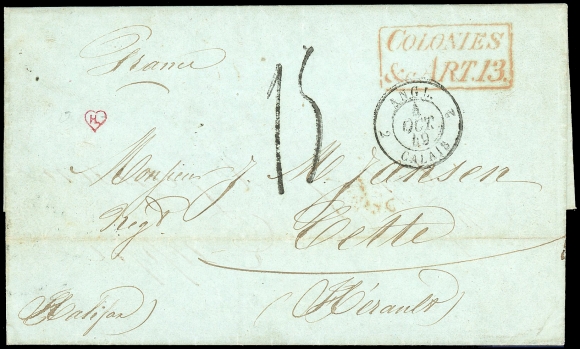 COLONIES
&c. ART. 13.
France
15
ANGL.
4
OCT.
49
2 CALAIS 2
H
Monsieur J. M. Jansen
Cette
(Halifax) (Hérault)